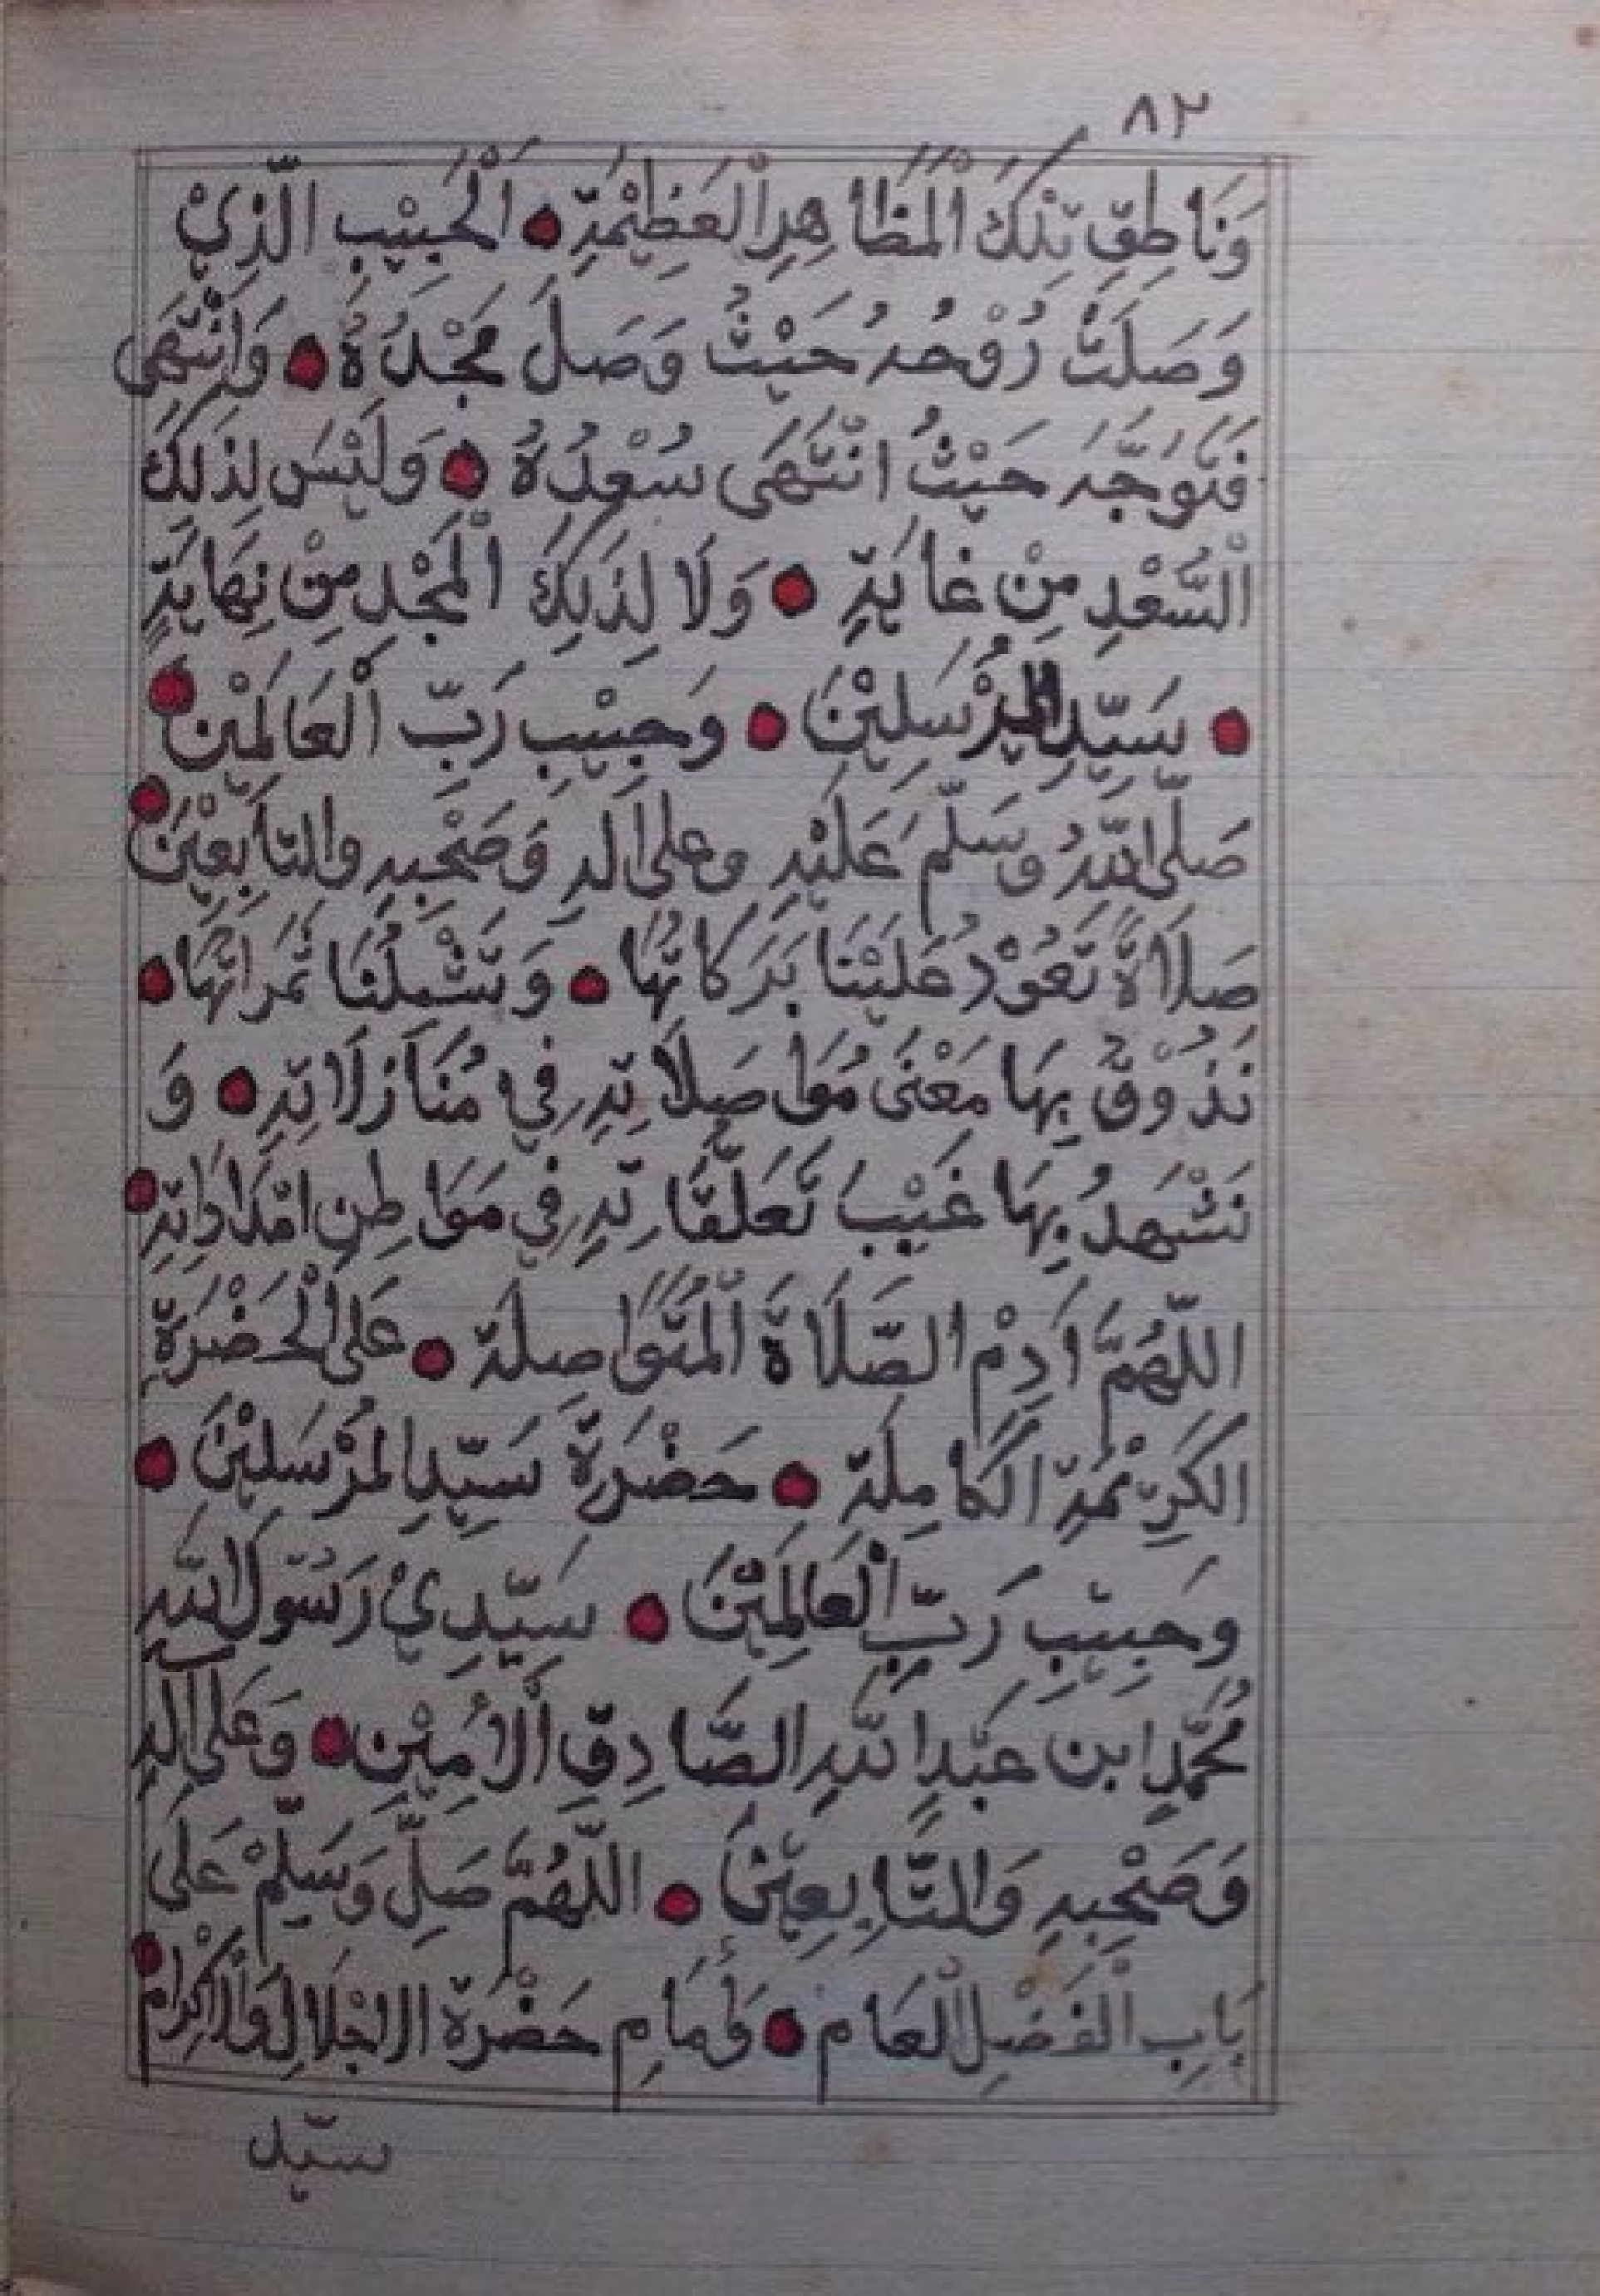 ٨٢
وَنَاطِقِ تِلْكَ الْمَظَاهِرِ الْعَظِيْمَةِ • اَلْحَبِيْبِ الَّذِيْ
وَصَلَتْ رُوْحُهُ حَيْثُ وَصَلَ مَجْدُهُ • وَانْتَهَى
فَتَوَجَّهَ حَيْثُ انْتَهَى سُعْدُهُ • وَلَيْسَ لِذٰلِكَ
السَّعْدِ مِنْ غَايَةٍ • وَلَا لِذٰلِكَ الْمَجْدِ مِنْ نِهَايَةٍ
• سَيِّدِ الْمُرْسَلِيْنَ • وَحَبِيْبِ رَبِّ الْعَالَمِيْنَ •
صَلَّى اللّٰهُ وَسَلَّمَ عَلَيْهِ وعلى الهِ وَصَحْبِهِ والتابِعِيْنَ •
صَلَاةً تَعُوْدُ عَلَيْنَا بَرَكَاتُهَا • وَتَشْمِلُنَا ثَمَرَاتُهَا •
نَذُوْقُ بِهَا مَعْنَى مُوَاصَلَاتِهِ فِيْ مُنَازَلَاتِهِ • وَ
نَشْهَدُ بِهَا غَيْبَ تَعَلُّقَاتِهِ فِي مَوَاطِنِ امْدَادَاتِهِ •
اللّٰهُمَّ اَدِمْ الصَّلَاةَ الْمُتَوَاصِلَة • عَلَى الْحَضْرَةِ
الكَرِيْمَةِ الكَامِلَةِ • حَضْرَةِ سَيِّدِ المُرْسَلِيْنَ •
وَحَبِيْبِ رَبِّ الْعَالَمِيْنَ • سَيِّدِيْ رَسُوْلِ اللّٰهِ
مُحَمَّدِ ابن عَبْدِ اللّٰهِ الصَّادِقِ الْاَمِيْنِ • وَعَلى الهِ
وَصَحْبِهِ وَالتَّابِعِيْنَ • اللّٰهُمَّ صَلِّ وَسَلِّمْ عَلَى
بَابِ الْفَضْلِ الْعَام • وَأَمَامِ حَضْرَةِ الاجْلَالِ وَالاكْرَام •
سيّد